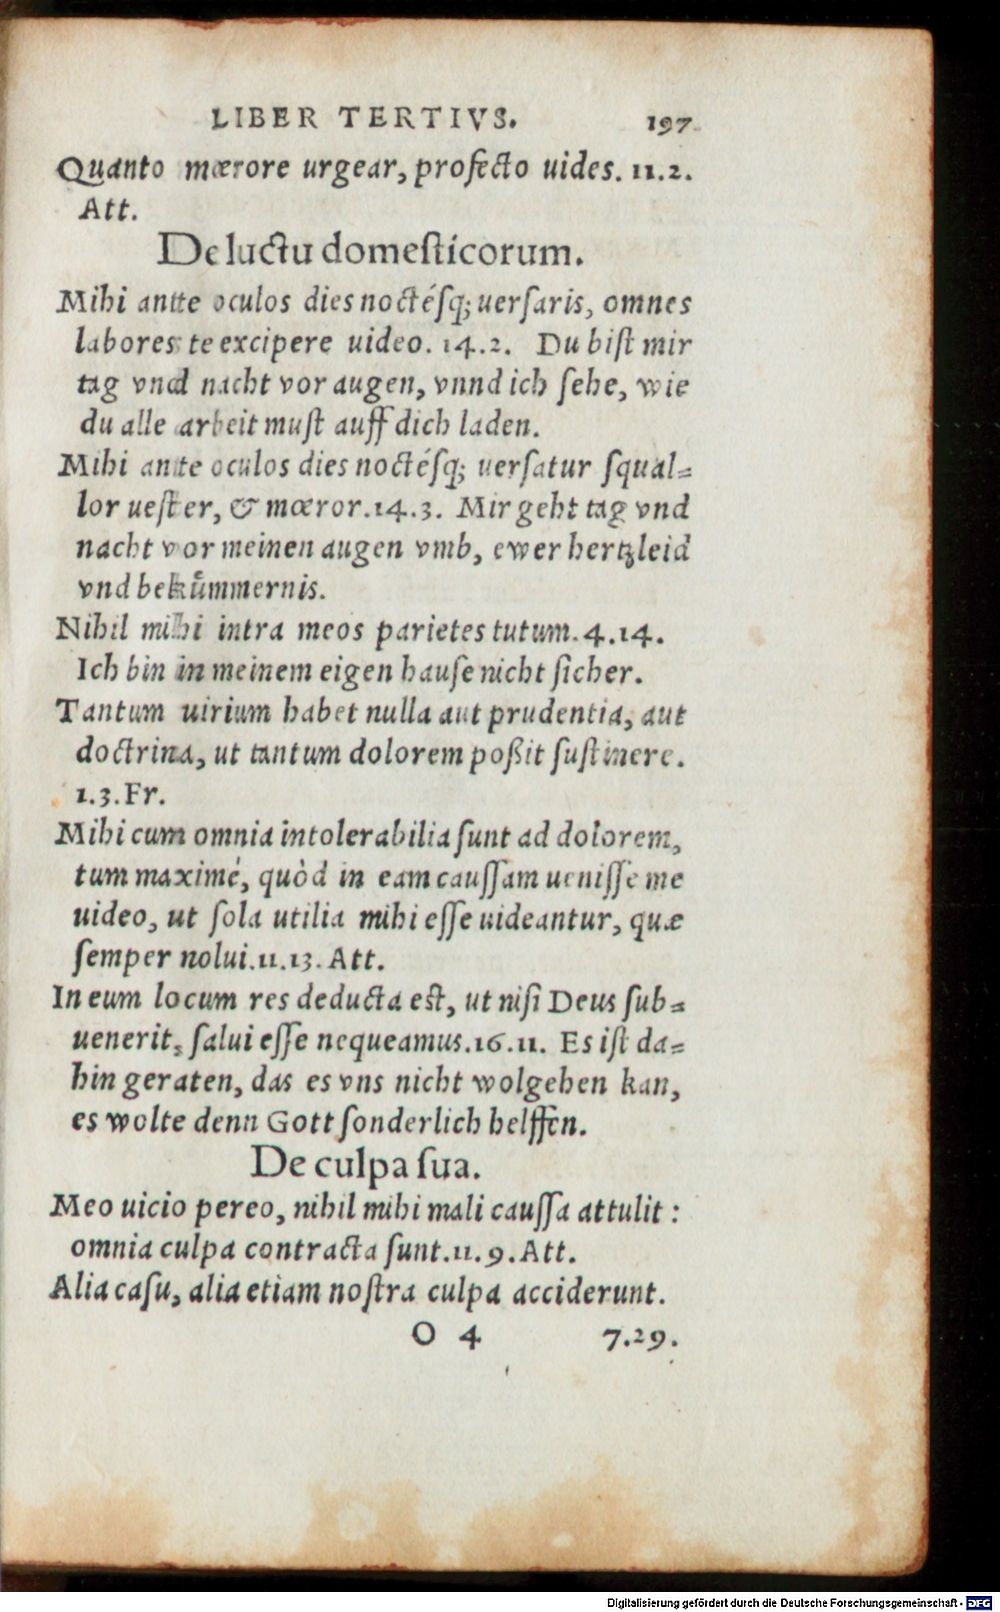 LIBER TERTIVS. 197
Quanto mœrore urgear, profecto uides. 11.2.
Att.
De luctu domesticorum.
Mihi antte oculos dies noctésq; uerſaris, omnes
labores te excipere uideo. 14.2. Du biſt mir
tag vnd nacht vor augen, vnnd ich ſehe, wie
du alle arbeit muſt auff dich laden.
Mihi antte oculos dies noctésq; uerſatur ſqual-
lor ueſter, & mœror.14.3. Mir geht tag vnd
nacht vor meinen augen vmb, ewer hertzleid
vnd bekuͤmmernis.
Nihil mihi intra meos parietes tutum.4.14.
Ich bin in meinem eigen hauſe nicht ſicher.
Tantum uirium habet nulla aut prudentia, aut
doctrina, ut tantum dolorem poßit ſuſtinere.
1.3.Fr.
Mihi cum omnia intolerabilia ſunt ad dolorem,
tum maximé, quòd in eam cauſſam ueniſſe me
uideo, ut ſola utilia mihi eſſe uideantur, quæ
ſemper nolui.11.13.Att.
In eum locum res deducta eſt, ut niſi Deus ſub-
uenerit, ſalui eſſe nequeamus.16.11. Es iſt da-
hin geraten, das es vns nicht wolgehen kan,
es wolte denn Gott ſonderlich helffen.
De culpa ſua.
Meo uicio pereo, nihil mihi mali cauſſa attulit :
omnia culpa contracta ſunt.11.9.Att.
Alia caſu, alia etiam noſtra culpa acciderunt.
O 4 7.29.
Digitalisierung gefördert durch die Deutsche Forschungsgemeinschaft - DFG